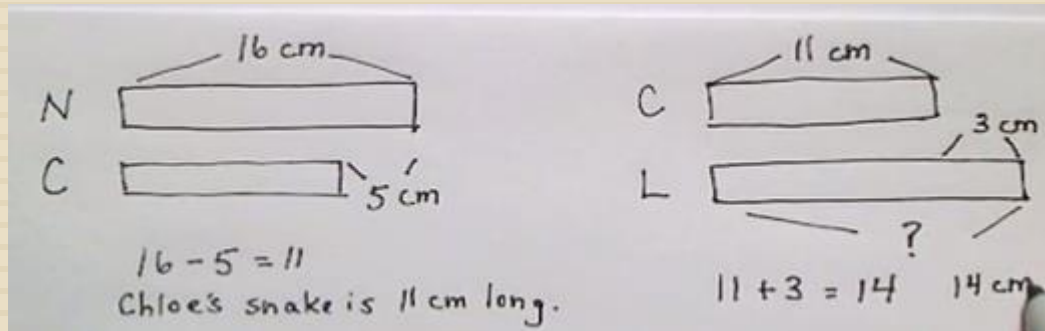 16 cm
N
C
5 cm
16 - 5 = 11
Chloe's snake is 11 cm long.
11 cm
C
3 cm
L
?
11 + 3 = 14 14 cm